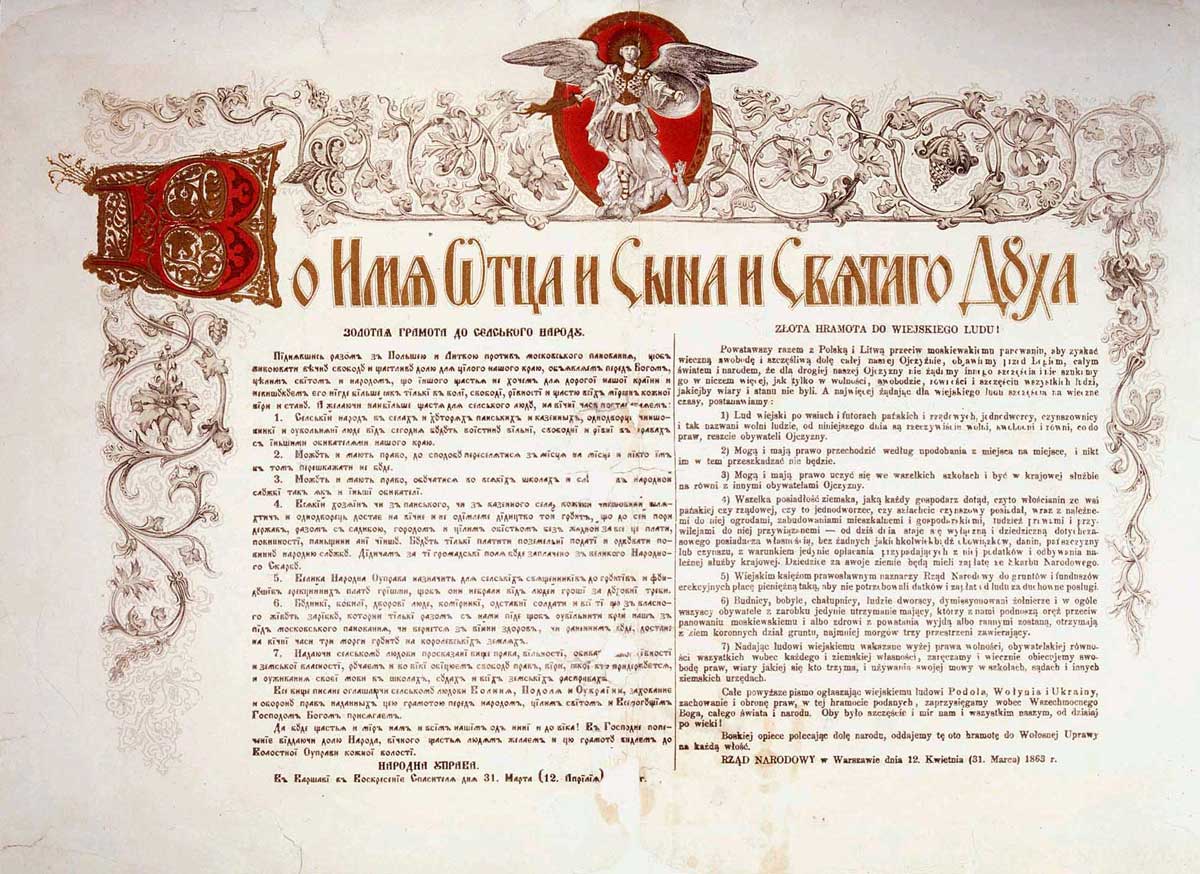 Во Имѧ Ѿтца и Сына и Свѧтаго Дꙋха
ЗОЛОТАЯ ГРАМОТА ДО СЕЛЬСЬКОГО НАРОДꙊ.
Підпявшись разо́мъ зъ Польшею и Литвою противъ московського пановання, щобъ
вѣчну свободу и щастливу долю для цілого нашого краю, объявляемъ передъ Богомъ,
цѣлимъ світомъ и народомъ, що іншого щастья не хочемъ для дорогої нашої країни и
его нігде більше якъ тілько въ волі, свободі, рівності и щастю всіхъ кожної
віри и стану. А желаючи найбільше щастья для сельського люду, на вічні часи
1. Селській народъ въ селахъ и хуторахъ паньскихъ и казннныхъ, однодворці
люде відъ сегодня будуть воїстину вільні, свободні и рівні въ правахъ
съ іншими обивателями нашого краю.
2. Можуть и мають право, до сподобу переселятися зъ місця на місце и нікто імъ
въ томъ перешкажати не буде.
3. Можуть и мають право, обучатися во всякіхъ школахъ и въ народній
службі такъ якъ и іньші обивателі.
4. Всякій хозяїнъ чи зъ паньского, чи зъ казенного села,
и однодворецъ достае на вічне и не одіймлеме дідицтво той грунтъ, що до сеи пори
державъ, разомъ съ садибою, городомъ и цілимъ
повинності, паньщини ані чіншу. Будуть тілько платити поземельні податі и одбувати
народню службу. Дідичамъ за ті громадські поля буде заплачено зъ великого Народно-
го Скарбу.
5. Велика Народна Оуправа назначить для селськіхъ священниківъ до грунтівъ и фун-
душівъ плату грішми, щобъ они не брали відъ люди гроші за духовні треби.
6. Будникі, бобилі, дворові люде, комірникі, одставні солдати и всі ті що зъ власно-
го живуть зарібку, котории тілько разомъ съ нами піде щобъ освільнити край нашъ зъ
підъ московського пановання, чи вернется зъ війни здоровъ, чи раненимъ буде, достане
на вічні часи три морги грунту на королевськіхъ земляхъ.
7. Надаючи селському людови просказані више права, вільності,
и земської власності, и во вікі обіцяемъ свободу правъ, віри, якої хто придержуется,
и оуживання своеї мови въ школахъ, судахъ и всіхъ земськіхъ расправахъ.
Все више писанне оглашаючи селському людови Волиня, Подоля и Оукраїни, заховання
и оборону правъ наданныхъ цею грамотою передъ народомъ, цілимъ світомъ и Всемогущімъ
Господомъ Богомъ присягаемъ.
Да буде щастья и міръ намъ и всімъ нашімъ одъ нині и до віка! Въ Господне попе-
чение віддаючи долю Народа, вічного щастья людямъ желаемъ и цю грамоту видаемъ до
Волостної Оуправи кожної волості.
НАРОДНА УПРАВА.
Въ Варшаві въ Воскресение Спасителя дня 31. Марта (12. Априлия) г.
ZŁOTA HRAMOTA DO WIEJSKIEGO LUDU!
Powstawszy razem z Polską i Litwą przeciw moskiewskiemu panowaniu, aby zyskać
wieczną swobodę i szczęśliwą dolę całej naszej Ojczyźnie, objawiamy przed Bogiem, całym
światem i narodem, że dla drogiej naszej Ojczyzny nie żądamy innego szczęścia i nie szukamy
go w niczem więcej, jak tylko w wolności, swobodzie, równości i szczęściu wszystkich ludzi,
jakiejby wiary i stanu nie byli. A najwięcej żądając dla wiejskiego ludu szczęścia na wieczne
czasy, postanawiamy:
1) Lud wiejski po wsiach i futorach pańskich i rządowych, jednodworcy, czynszownicy
i tak nazwani wolni ludzie, od niniejszego dnia są rzeczywiście wolni, swobodni i równi, co do
praw, reszcie obywateli Ojczyzny.
2) Mogą i mają prawo przechodzić według upodobania z miejsca na miejsce, i nikt
im w tem przeszkadzać nie będzie.
3) Mogą i mają prawo uczyć się we wszelkich szkołach i być w krajowej służbie
na równi z innymi obywatelami Ojczyzny.
4) Wszelka posiadłość ziemska, jaką każdy gospodarz dotąd, czyto włościanin ze wsi
pańskiej czy rządowej, czy to jednodworzec, czy szlachcic czynszowy posiadał, wraz z należne-
mi do niej ogrodami, zabudowaniami mieszkalnemi i gospodarskiemi, tudzież prawami i przy-
wilejami do niej przywiązanemi — od dziś dnia staje się wyłączną i dziedziczną dotychcza-
sowego posiadacza własnością, bez żadnych jakichkolwiekbądź obowiązków, danin, pańszczyzny
lub czynszu, z warunkiem jedynie opłacania przypadających z niej podatków i odbywania na-
leżnej służby krajowej. Dziedzice za swoje ziemie będą mieli zapłatę ze Skarbu Narodowego.
5) Wiejskim księżom prawosławnym naznarzy Rząd Narodowy do gruntów i funduszów
erekcyjnych płacę pieniężną taką, aby nie potrzebowali datków i zapłat od ludu za duchowne posługi.
6) Budnicy, bobyle, chałupnicy, ludzie dworscy, dymisyonowani żołnierze i w ogóle
wszyscy obywatele z zarobku jedynie utrzymanie mający, którzy z nami podniosą oręż przeciw
panowaniu moskiewskiemu i albo zdrowi z powstania wyjdą albo rannymi zostaną, otrzymają
z ziem koronnych dział gruntu, najmniej morgów trzy przestrzeni zawierający.
7) Nadając ludowi wiejskiemu wskazane wyżej prawa wolności, obywatelskiej równo-
ści wszystkich wobec każdego i ziemskiej własności, zaręczamy i wiecznie obiecujemy swo-
bodę praw, wiary jakiej się kto trzyma, i używania swojej mowy w szkołach, sądach i innych
ziemskich urzędach.
Całe powyższe pismo ogłaszając wiejskiemu ludowi Podola, Wołynia i Ukrainy,
zachowanie i obronę praw, w tej hramocie podanych, zaprzysięgamy wobec Wszechmocnego
Boga, całego świata i narodu. Oby było szczęście i mir nam i wszystkim naszym, od dzisiaj
po wieki!
Boskiej opiece polecając dolę narodu, oddajemy tę oto hramotę do Wołosnej Uprawy
na każdą włość.
RZĄD NARODOWY w Warszawie dnia 12. Kwietnia (31. Marca) 1863 r.